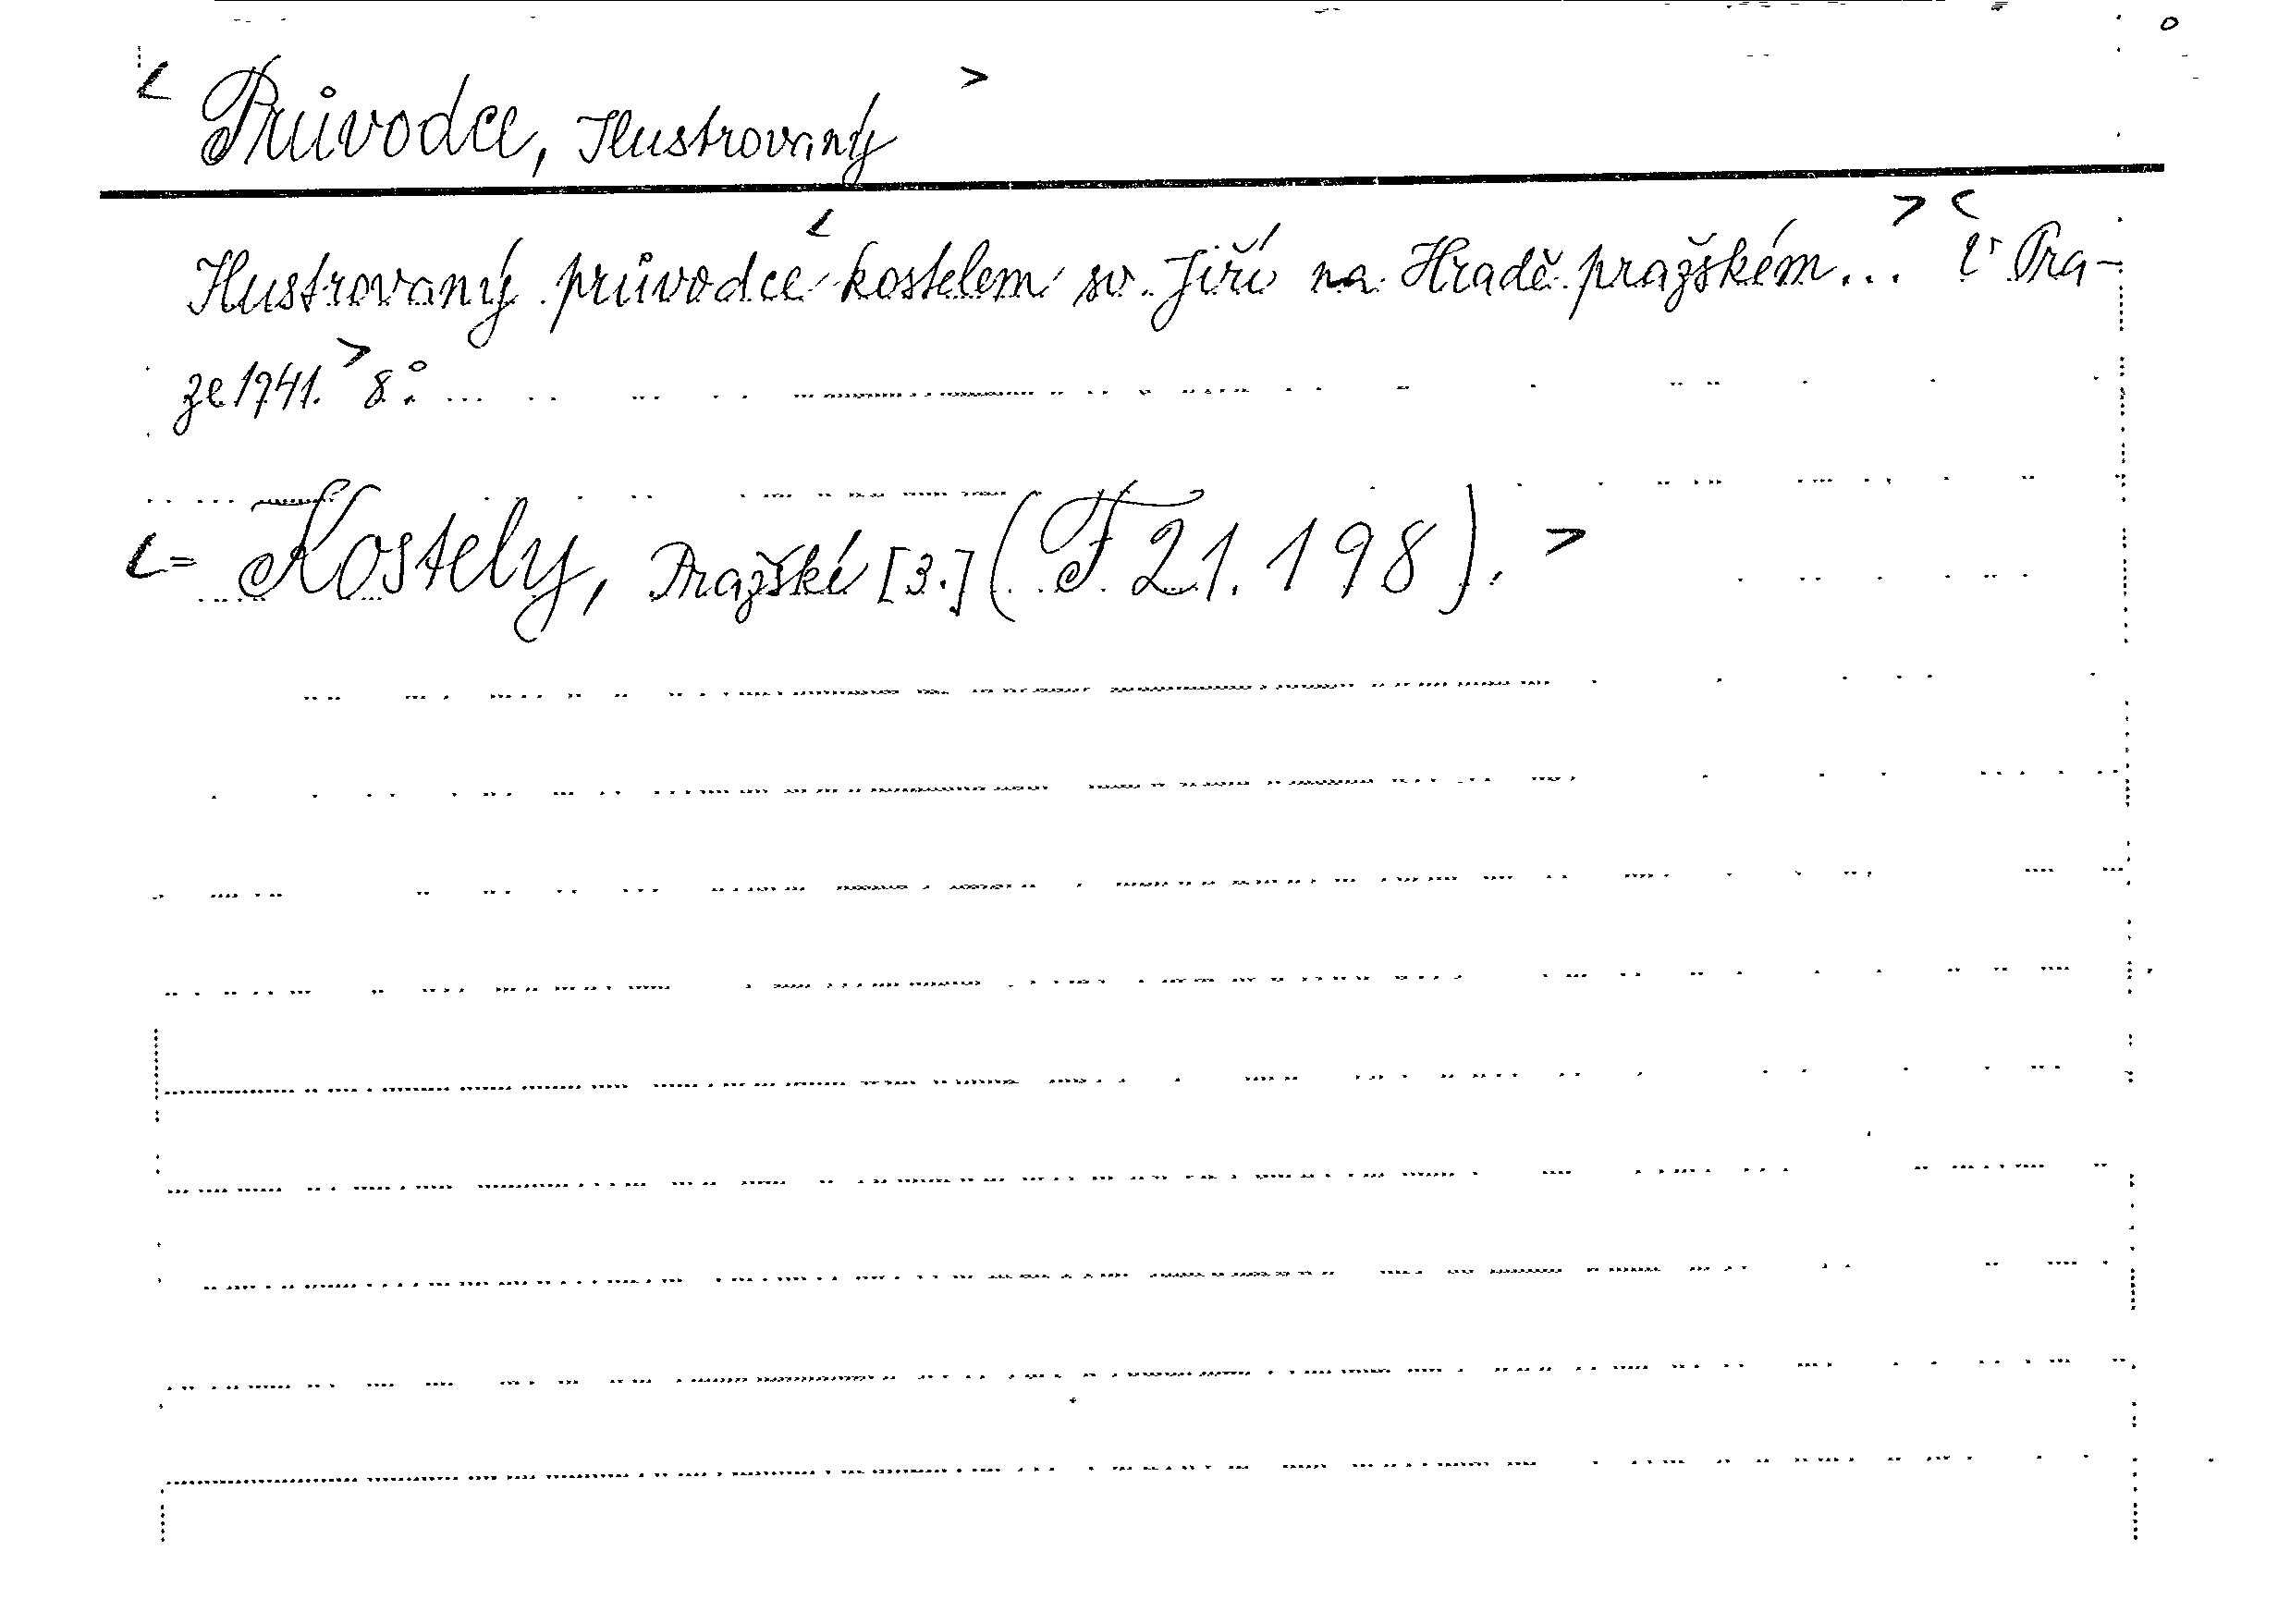 < Průvodce, Ilustrovaný >
Ilustrovaný průvodce < kostelem sv. Jiří na Hradě pražském... > < V Pra-
ze 1941. > 8°.
<= Kostely, Pražské [3.] (F 21.198). >